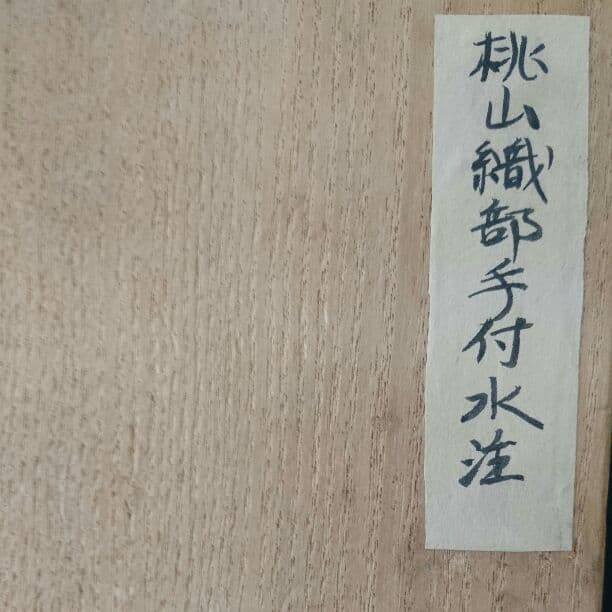 桃山織部手付水注